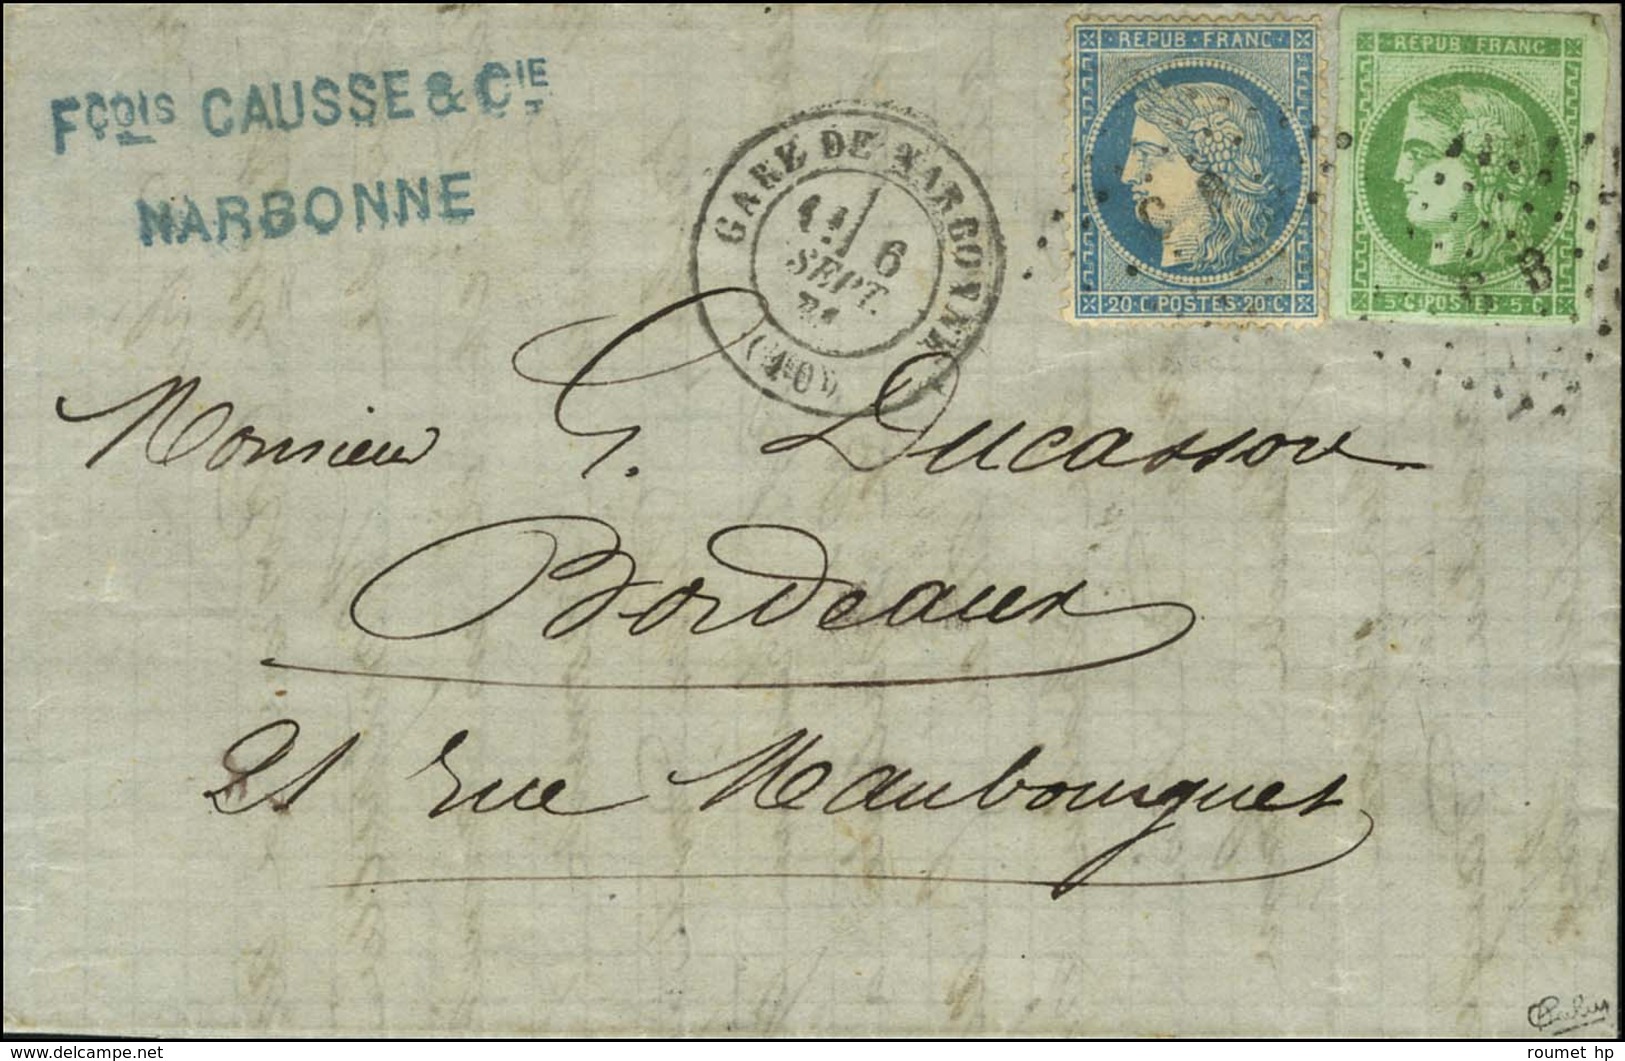 Fçois CAUSSE & Cie
NARBONNE
GARE DE NARBONNE
6
SEPT.
71
REPUB · FRANC ·
20 · C · POSTES · 20 · C
REPUB FRANC
5 C · POSTES · 5 C
Monsieur G. Ducassou
Bordeaux
21 rue Maubourguet
roumet hp